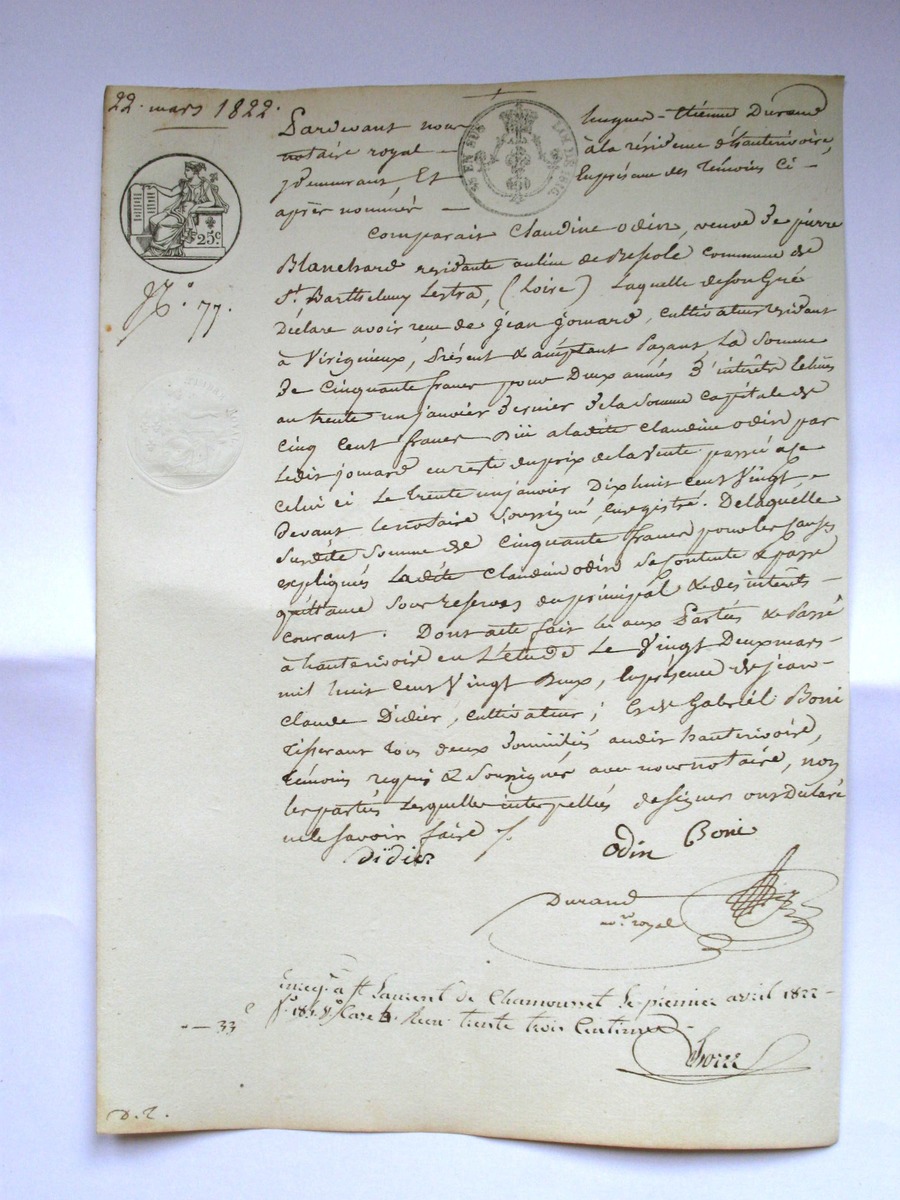 22. mars 1822.
Pardevant nous hugues-étienne Durand
notaire royal à la résidence d'hauterivoire,
y demeurant, Et En présence des témoins ci-
après nommés
EN SUS
LOI DE 1816
25c
N° 77.
Comparait Claudine odin, veuve de pierre
Blanchard residante au lieu de commune de
St. Barthelemy Lestra, (Loire) Laquelle de son Gré
Déclare avoir reçu de jean jomard, cultivateur residant
à Virigneux, présent & acceptant payant La Somme
De Cinquante francs pour Deux années D'intérêts échus
au trente un janvier Dernier De la Somme Capitale de
Cinq Cent francs à ladite Claudine odin par
Ledit jomard en reste du prix de la Vente passée à
Celui ci Le trente un janvier Dix huit cent Vingt,
Devant le notaire Soussigné, enregistré. De laquelle
Susdite Somme de Cinquante francs pour les causes
expliqués Ladite Claudine odin se Contente & passe
quittance sous reserves du principal & des intérêts
courant. Dont acte fait lu aux Parties & Passé
à hauterivoire en L'étude Le Vingt Deux mars
mil huit Cent Vingt Deux, En présence de jean-
Claude Didier, cultivateur; Et de Gabriël Boni
tisserant tous deux Domiciliés audit hauterivoire,
témoins requis & Soussignés avec nous notaire, non
les parties Lesquelle interpellés de signer ont Déclaré
ne le savoir faire /.
didier
odin Boni
Durand
nre royal
Enregé à St Laurent de Chamousset le premier avril 1822
fo 181 Vo Case 4 Reçu trente trois Centimes
33 c
D. 2.